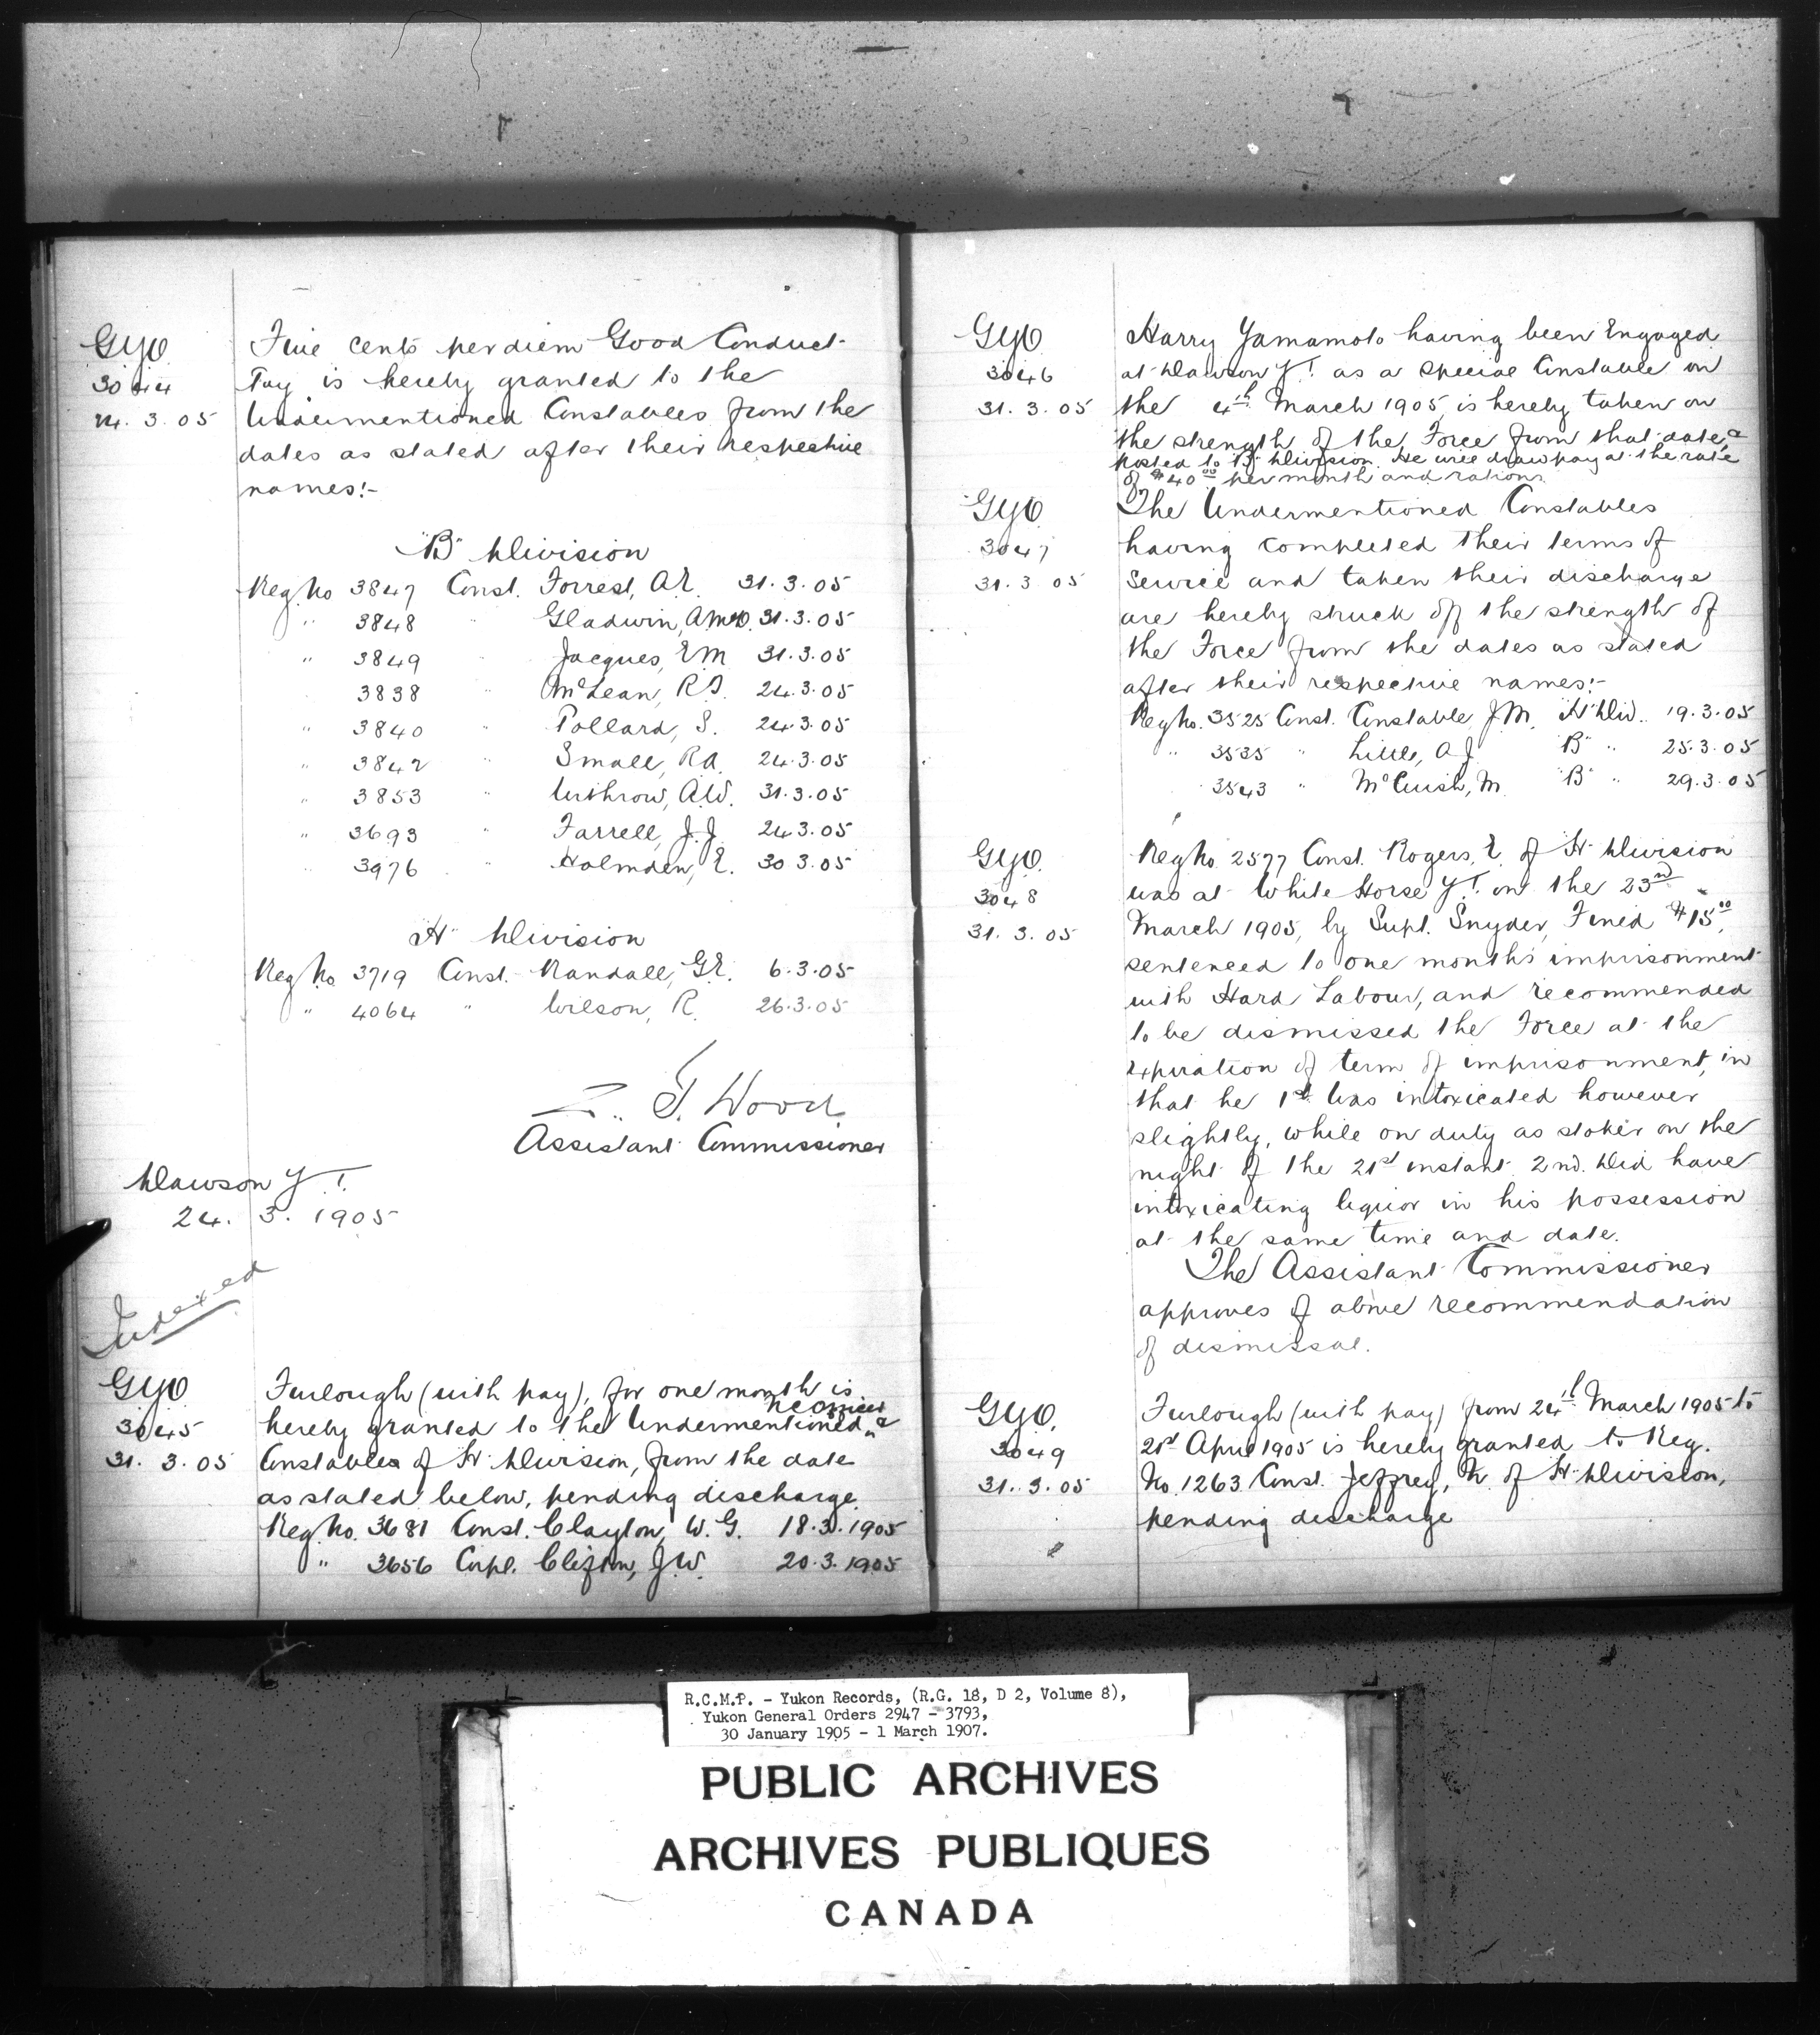 GYO
3044
24. 3. 05
Five cents per diem Good Conduct
Pay is hereby granted to the
Undermentioned Constables from the
dates as stated after their respective
names:-
"B" Division
Reg. No 3847 Const. Forrest, A.E. 31.3.05
" 3848 " Gladwin, 31.3.05
" 3849 " Jacques, E.M 31.3.05
3838 " McLean, R.D. 24.3.05
" 3840 " Pollard, S. 24.3.05
" 3842 " Small, R.A. 24.3.05
" 3853 " Withrow, A.W. 31.3.05
" 3693 " Farrell, J.J. 24.3.05
" 3976 " Holmden, E. 30.3.05
"H" Division
Reg No 3719 Const. Randall, G.E. 6.3.05
" 4064 " Wilson, R. 26.3.05
Z. T. Wood
Assistant Commissioner
Dawson Y.T.
24. 3. 1905
Indexed
GYO
3045
31. 3. 05
Furlough (with pay), for one month is
hereby granted to the Undermentioned N.C.Officer &
Constables of "H" Division, from the date
as stated below, pending discharge.
Reg. No. 3681 Const. Clayton, W.G. 18.3.1905
" 3656 Corpl. Clifton, J.W. 20.3.1905
GYO
3046
31. 3. 05
Harry Yamamoto having been Engaged
at Dawson Y.T. as a Special Constable on
the 4th March 1905, is hereby taken on
the strength of the Force from that date, &
posted to "B" Division. He will draw pay at the rate
of $40.00 per month and rations.
GYO
3047
31. 3 05
The Undermentioned Constables
having completed their terms of
Service and taken their discharge
are hereby struck off the strength of
the Force from the dates as stated
after their respective names:-
Reg No. 3525 Const. Constable, J.M. "H" Div. 19.3.05
" 3535 " Little, A.J. "B" " 25.3.05
3543 " McCuish, M. "B" " 29.3.05
GYO.
3048
31. 3. 05
Reg No. 2577 Const. Rogers, E. of "H" Division
was at White Horse Y.T. on the 23rd
March 1905, by Supt. Snyder, Fined $15.00,
sentenced to one month's imprisonment
with Hard Labour, and recommended
to be dismissed the Force at the
expiration of term of imprisonment, in
that he 1st Was intoxicated however
slightly, while on duty as stoker on the
night of the 21st instant 2nd. Did have
intoxicating liquor in his possession
at the same time and date.
The Assistant Commissioner
approves of above recommendation
of dismissal.
GYO.
3049
31. 3. 05
Furlough (with pay) from 24th March 1905 to
21st April 1905 is hereby granted to Reg.
No. 1263 Const. Jeffrey, of "H" Division,
pending discharge
R.C.M.P. - Yukon Records, (R.G. 18, D 2, Volume 8),
Yukon General Orders 2947 - 3793,
30 January 1905 - 1 March 1907.
PUBLIC ARCHIVES
ARCHIVES PUBLIQUES
CANADA